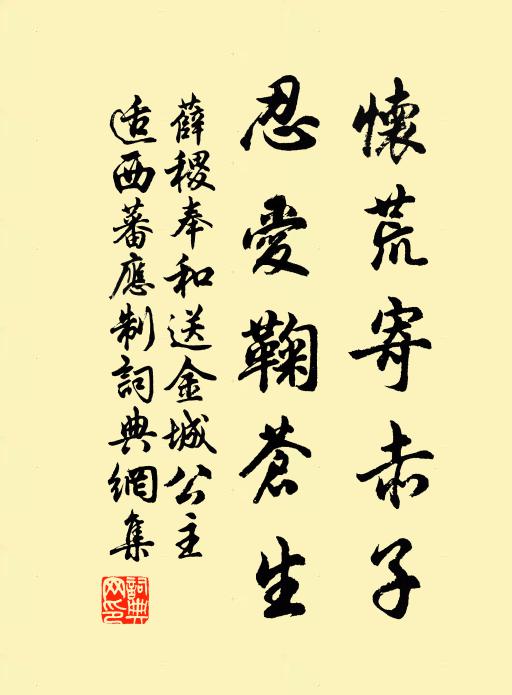 懷荒寄赤子
忍愛鞠蒼生
薛稷奉和送金城公主
适西蕃應制詞典網集
詞典网印